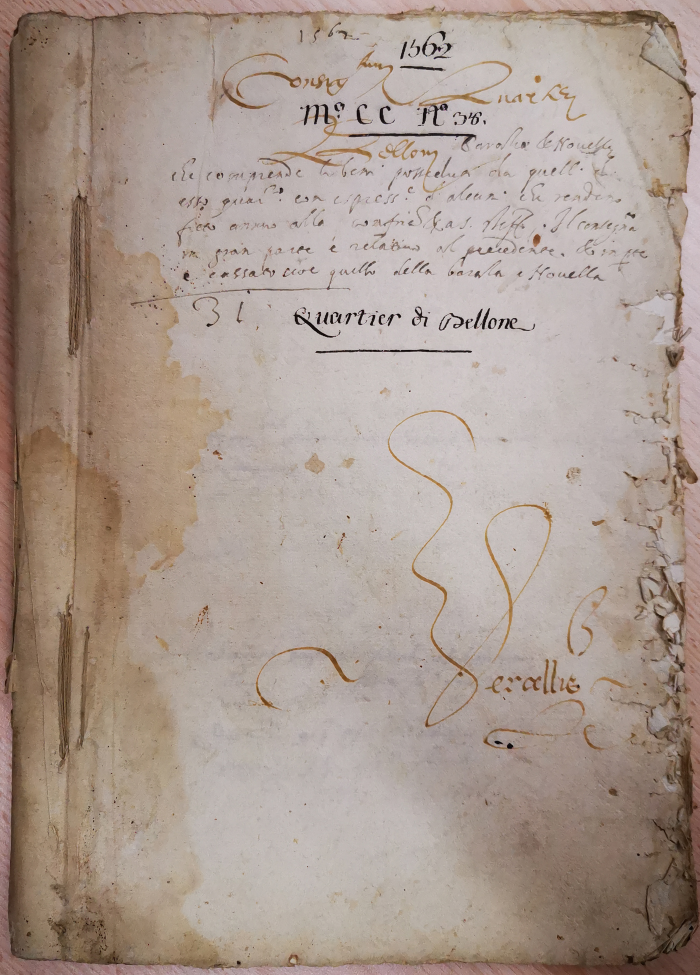 1562
1562
Consig Quarter
M.º CC Nº 38.
Bellon Baralis & Nouella
che comprende li beni posseduti da quelli di
esso quar.re con espress.e d'alcuni che rendeno
ficto annuo alla confrie S. Il consegna
in gran parte è relativo al precedente. & in fee
è cassato cioe quello della baralia e Nouella
31
Quartier di Bellone
6
Vercellis